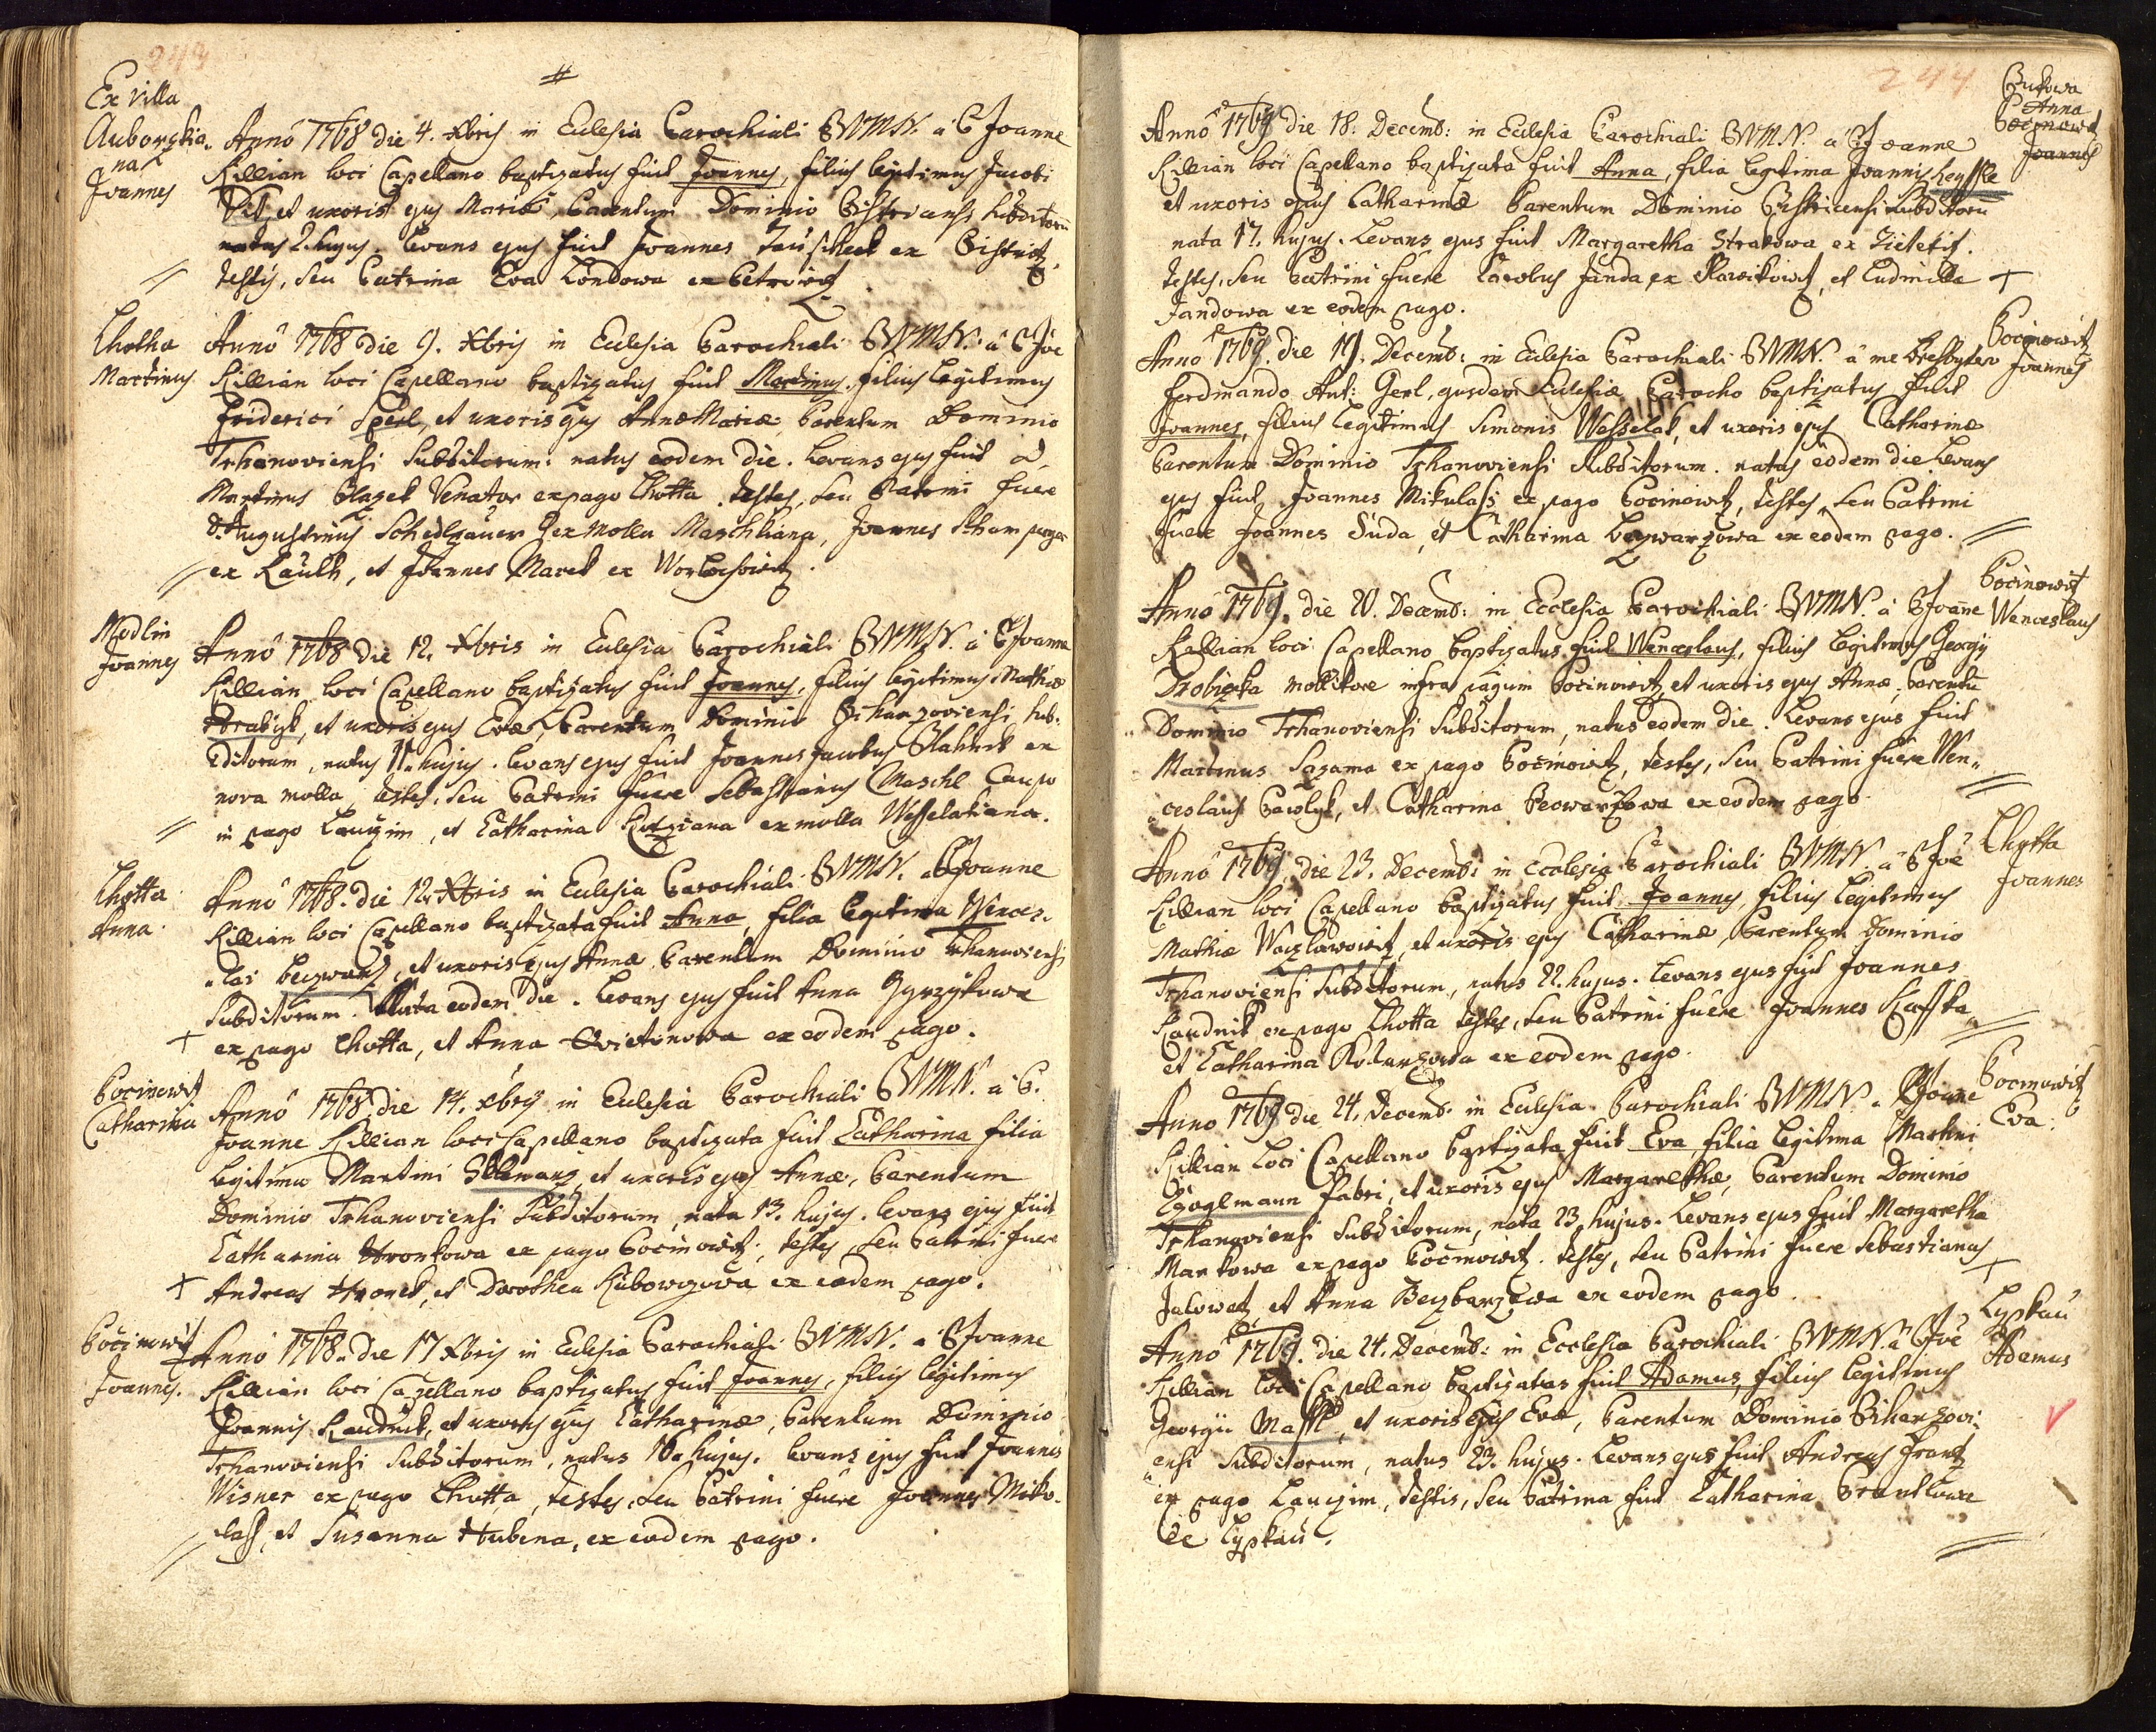 243
Ex Villa
Auborska
na
Joannes
Annô 1768 die 4. Xbris in Eclesia Parochiali BVMN. â P Joanne
Killian loci Capellano baptizatus fuit Joannes, filius legitimus Jacobi
Vit, et uxoris ejus Mariæ, Parentum Dominio Bistricensi subditorū
natus 2. hujus. Levans ejus fuit Joannes ex Bistritz,
testis, seu Patrina Eva Londowa ex Petrowitz
Lhotka
Martinus
Annô 1768 die 9. Xbris in Eclesia Parochiali BVMN. â P Joe
Killian loci Capellano baptizatus fuit Martinus, filius legitimus
Friderici Sperl, et uxoris ejus Annæ Mariæ, Parentum Dominio
Trhanoviensi Subditorum: natus eodem die. Levans ejus fuit D.
Martinus Blazek Venator ex pago Lhotta. testes, seu Patrini fuere
D. Augustinus ex Molla Maschliana, Joannes
ex Lauth, et Joannes Marek ex
Modlin
Joannes
Annô 1768 die 12. Xbris in Eclesia Parochiali BVMN. â P Joanne
Killian loci Capellano baptizatus fuit Joannes, filius legitimus Mathiæ
Hrabik, et uxoris ejus Evæ, Parentum Dominio sub-
ditorum, natus 11. hujus. Levans ejus fuit Joannes Jacobus ex
nova molla, testes, seu Patrini fuere Sebastianus Maschl Caupo
in pago Lauczim, et Catharina ex molla Wesselakiana.
Lhotta
Anna.
Annô 1768. die 12. Xbris in Eclesia Parochiali BVMN. â P Joanne
Killian loci Capellano baptizata fuit Anna, filia legitima Wences-
lai Beczwarz, et uxoris ejus Annæ, Parentum Dominio Trhanoviensi
Subditorum. Nata eodem die. Levans ejus fuit Anna
ex pago Lhotta, et Anna Kvietonowa ex eodem pago.
Pocinowitz
Catharina
Annô 1768 die 14. Xbris in Eclesia Parochiali BVMN. â P.
Joanne Killian loci Capellano baptizata fuit Catharina filia
legitima Martini et uxoris ejus Annæ, Parentum
Dominio Trhanoviensi Subditorum, nata 13. hujus. Levans ejus fuit
Catharina Hronkowa ex pago Pocinowitz, testes, seu Patrini fuere
Andreas Hronek, et Dorothea ex eodem pago.
Pocinowitz
Joannes.
Annô 1768. die 17 Xbris in Eclesia Parochiali BVMN. â P Joanne
Killian loci Capellano baptizatus fuit Joannes, filius legitimus
Joannis Kaudnik, et uxoris ejus Catharinæ, Parentum Dominio
Trhanoviensi Subditorum, natus 16. hujus. Levans ejus fuit Joannes
Wisner ex pago Lhotta, testes, seu Patrini fuere Joannes Miko-
lass, et Susanna Hubena, ex eodem pago.
244
Bukowa
Anna
Pocinowitz
Joannes
Annô 1769 die 18. Decemb: in Eclesia Parochiali BVMN. â P Joanne
Killian loci Capellano baptizata fuit Anna, filia legitima Joannis
et uxoris ejus Catharinæ Parentum Dominio Bistricensi subditorū
nata 17. hujus. Levans ejus fuit Margaretha Strakowa ex
testes, seu Patrini fuere Jacobus Janda ex et Ludmilla
Jandowa ex eodem pago.
Pocinowitz
Joannes
Annô 1769. die 19. Decemb: in Eclesia Parochiali BVMN. â me Presbytero
Ferdinando Ant: Gerl, ejusdem Eclesiæ Parocho baptizatus fuit
Joannes, filius legitimus Simonis Wesselak, et uxoris ejus Catharinæ
Parentum Dominio Trhanoviensi Subditorum. natus eodem die. Levans
ejus fuit Joannes Mikulass ex pago Pocinowitz, testes, seu Patrini
fuere Joannes Duda, et Catharina ex eodem pago.
Pocinowitz
Wenceslaus
Annô 1769. die 20. Decemb: in Ecclesia Parochiali BVMN. â P Joañe
Killian loci Capellano baptizatus fuit Wenceslaus, filius legitimus Georgij
molitore infra pagum Pocinowitz, et uxoris ejus Annæ, Parentū
Dominio Trhanoviensi Subditorum, natus eodem die. Levans ejus fuit
Martinus Sazama ex pago Pocinowitz, testes, seu Patrini fuere Wen-
ceslaus Pawlyk, et Catharina ex eodem pago.
Lhotta
Joannes
Annô 1769. die 23. Decemb: in Ecclesia Parochiali BVMN. â P Joe
Killian loci Capellano baptizatus fuit Joannes, filius legitimus
Mathiæ Waczlawowitz, et uxoris ejus Catharinæ, Parentum Dominio
Trhanoviensi Subditorum, natus 22. hujus. Levans ejus fuit Joannes
Kaudnik ex pago Lhotta testes, seu Patrini fuere Joannes
et Catharina ex eodem pago.
Pocinowitz
Eva.
Anno 1769 die 24. Decemb. in Eclesia Parochiali BVMN. â P Joañe
Killian loci Capellano baptizata fuit Eva, filia legitima Martini
fabri, et uxoris ejus Margarethæ, Parentum Dominio
Trhanoviensi Subditorum, nata 23 hujus. Levans ejus fuit Margaretha
Markowa ex pago Pocinowitz. testes, seu Patrini fuere Sebastianus
Jalowetz et Anna ex eodem pago.
Lyskau
Adamus
Annô 1769. die 24. Decemb: in Ecclesia Parochiali BVMN. â P Joe
Killian loci Capellano baptizatus fuit Adamus, filius legitimus
Georgii Maschl, et uxoris ejus Evæ, Parentum Dominio
ensi Subditorum, natus 23. hujus. Levans ejus fuit Andreas Frantz
ex pago Lauczim, testis, seu Patrina fuit Catharina
de Lyskau.